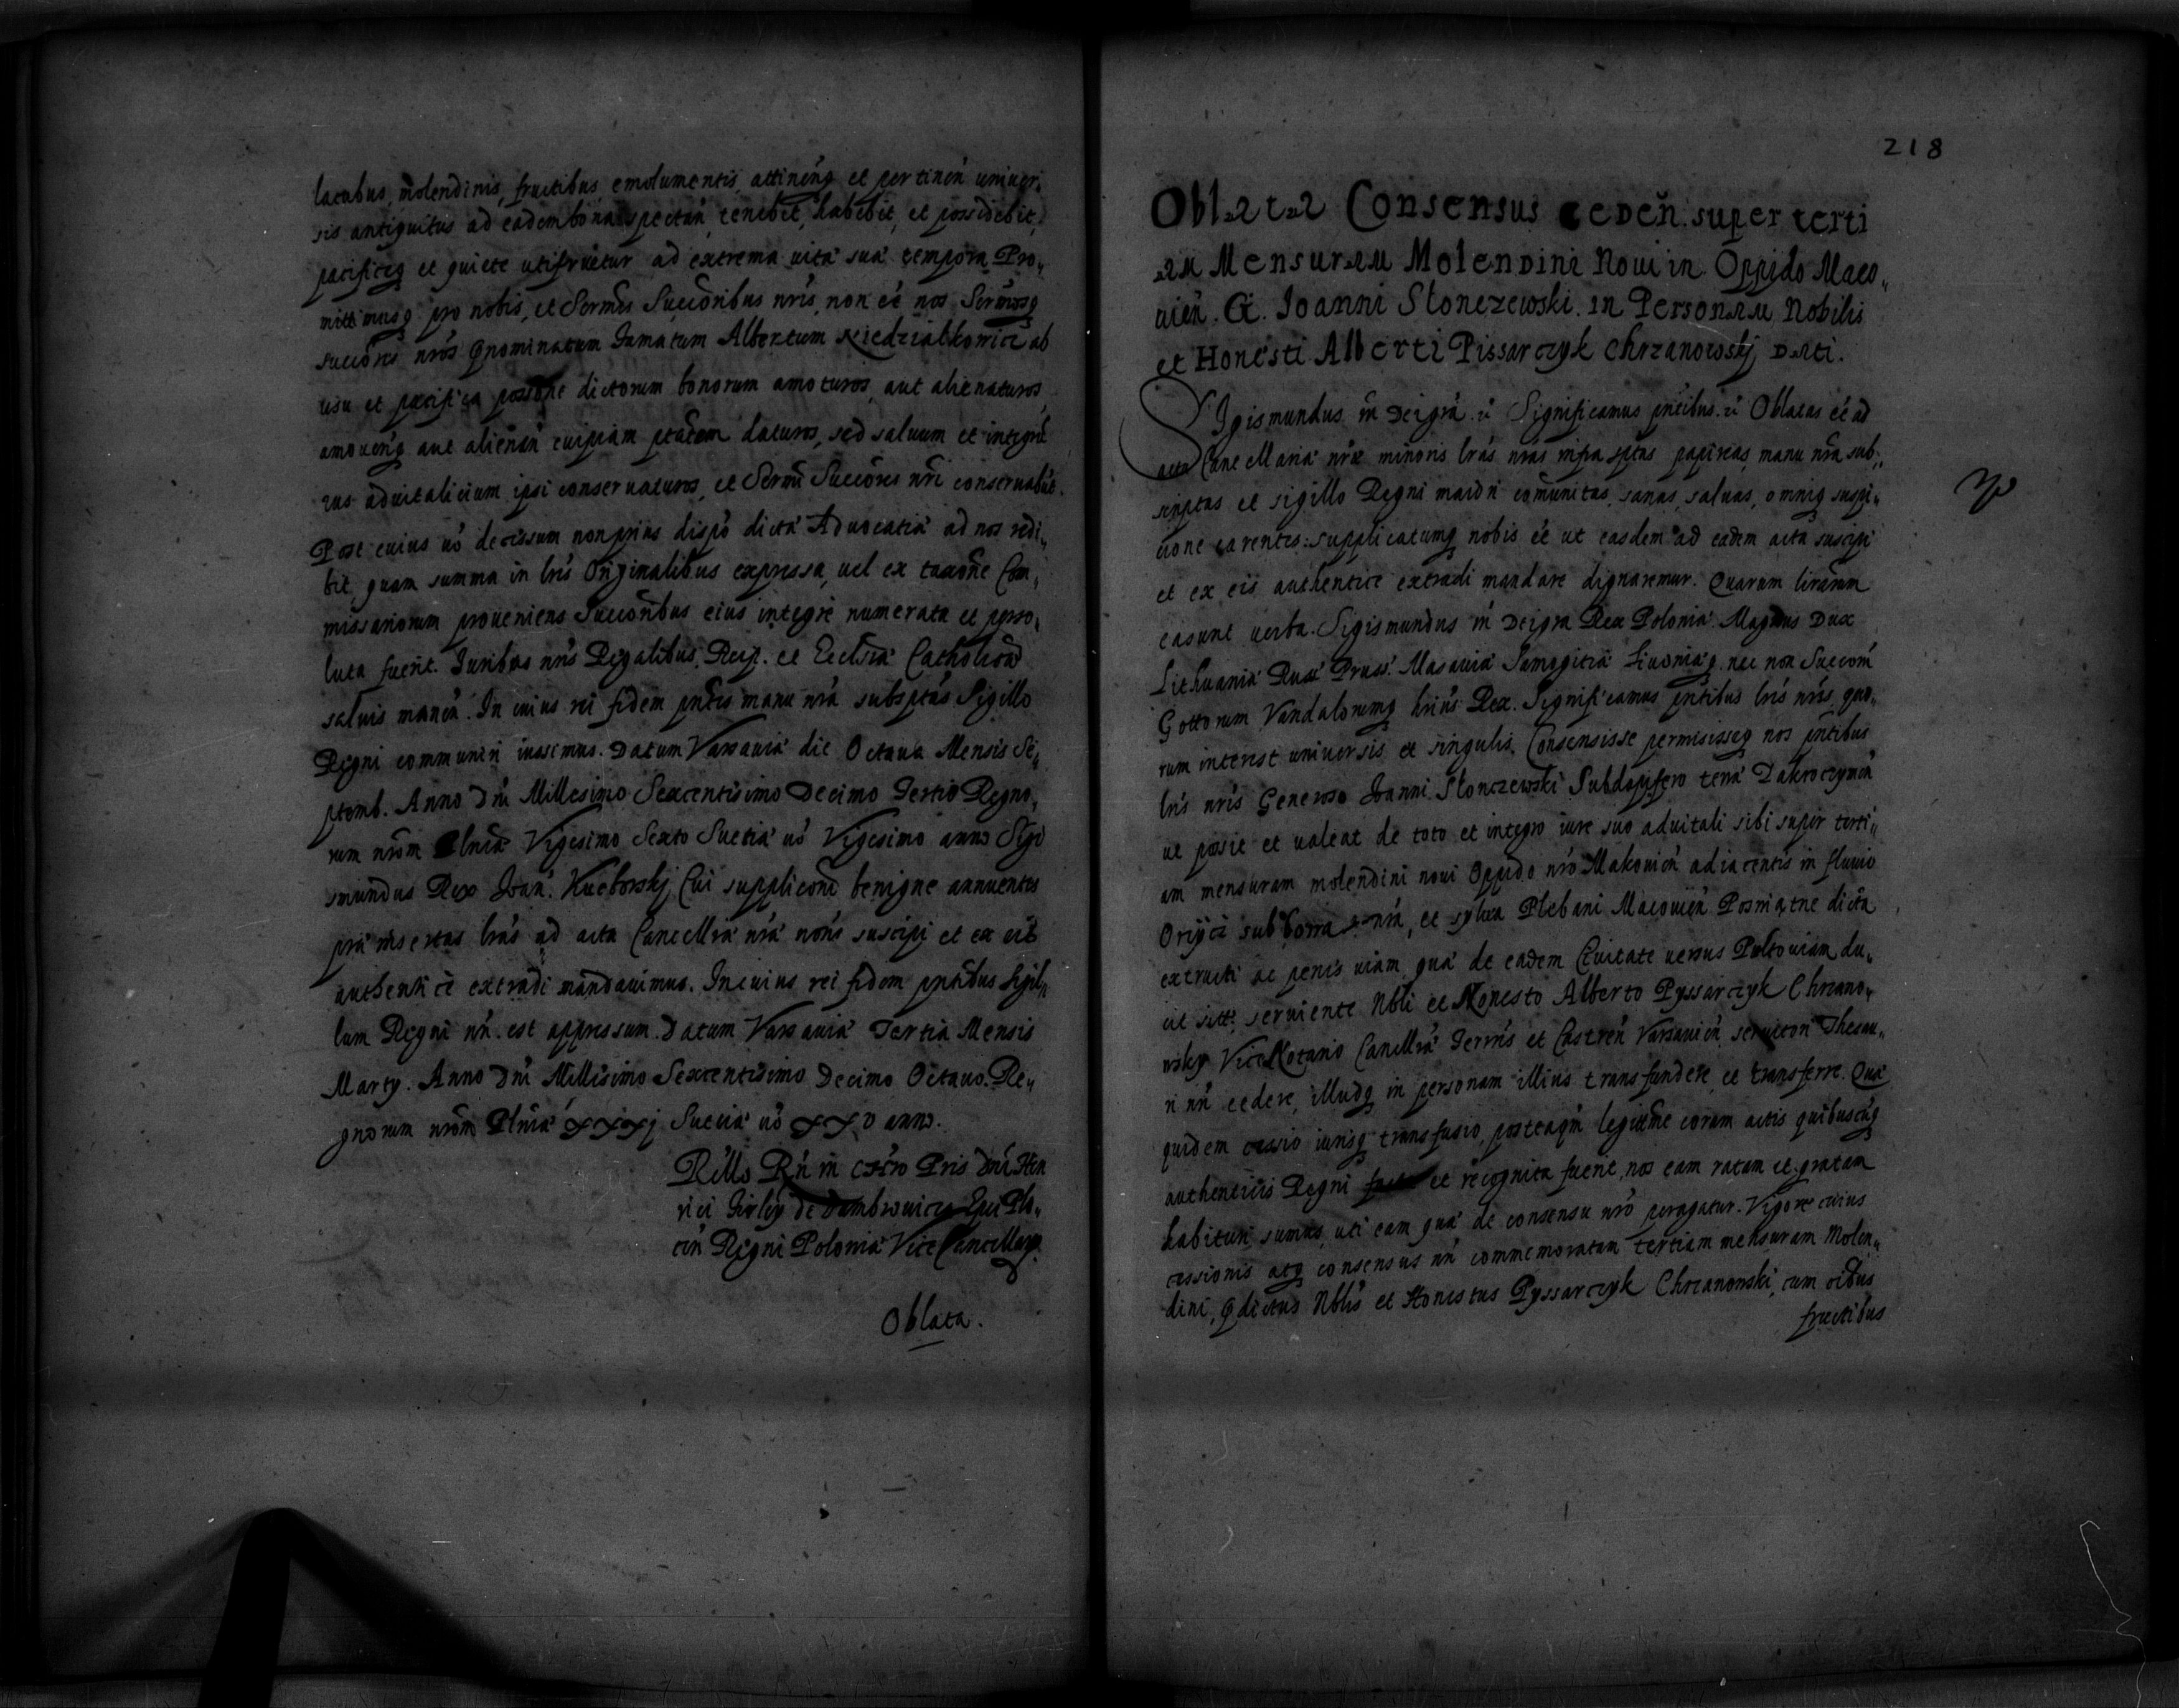 lacubus, molendinis, fructibus emolumentis, attinen̄q et pertinen̄ univer„
sis antiquitus ad eadem bona spectan̄, tenebit, habebit, et possidebit,
pacificeq et quiete utifruetur ad extrema uitæ suæ tempora. Pro„
mittimusq pro nobis, et Sermis Succōribus nr̄is, non ēē nos Sermosq
succōres nr̄os qnominatum Famatum Albertum Niedzialkowicz ab
usu et pacifica possōne dictorum bonorum amoturos, aut alienaturos,
amouen̄q aut alienan̄ cuipiam ptatem daturos, sed saluum et integrū
ius aduitalicium ipsi conseruaturos, et Sermi Succōres nr̄i conseruabūt.
Post cuius uō decessum non prius dispō dictæ Aduocatiæ ad nos redi„
bit, quam summa in lr̄is Originalibus expressa, uel ex taxōne Com„
missariorum proueniens Succōribus eius integre numerata et perso„
luta fuerit. Iuribus nr̄is Regalibus, Reip. et Ecclīæ Catholicæ
saluis manen̄. In cuius rei fidem pn̄tes manu nr̄a subsptas Sigillo
Regni communiri iussimus. Datum Varsauiæ die Octaua Mensis Se„
ptemb. Anno Dn̄i Millesimo Sexcentesimo Decimo Tertio Regno„
rum nr̄orum Plniæ Vigesimo Sexto Suetiæ uō Vigesimo anno Sigi
smundus Rex Ioan̄. Kuczborskj Cui supplicōni benigne annuentes
præinsertas lr̄as ad acta Cancellriæ nr̄æ nōris suscipi et ex eis
authentice extradi mandauimus. In cuius rei fidem pn̄tibus Sigil„
lum Regni nr̄i est appressum. Datum Varsauiæ Tertia Mensis
Marty. Anno Dn̄i Millesimo Sexcentesimo Decimo Octauo. Re„
gnorum nr̄orum Plniæ xxxj Sueciæ uō xxv anno.
Rēllo Rn̄i in Chr̄o Pris Dn̄i Hen
rici Firley de Dambrowicza Epi Plo„
cen̄ Regni Poloniæ Vice Cancellarij.
Oblata.
218
Oblata Consensus ceden̄. super terti
am Mensuram Molendini Noui in Oppido Maco„
uien̄. G. Ioanni Slonczewski. in Personam Nobilis
et Honesti Alberti Pissarczyk Chrzanowskj Dati.
Sigismundus iii Dei gra̅. &c. Significamus pn̄tibus. &c. Oblatas ēē ad
acta Cancellariæ nr̄æ minoris lr̄as nr̄as infra sptas papireas, manu nr̄a sub„
scriptas et sigillo Regni maiori cōmunitas, sanas, saluas, omniq suspi„
cione carentes: supplicatumq nobis ēē ut easdem ad eadem acta suscipi
et ex eis authentice extradi mandare dignaremur. Quarum lirarum
ea sunt uerba. Sigismundus iii Dei gra Rex Poloniæ Magnus Dux
Lithuaniæ Russ. Pruss. Masouiæ Samogitiæ Liuoniæq. nec non Suecorū
Gottorum Vandalorumq hrius Rex. Significamus pn̄tibus lr̄is nr̄is quo„
rum interest uniuersis et singulis. Consensisse permisisseq nos pn̄tibus
lr̄is nr̄is Generoso Ioanni Slonczewski Subdapifero terræ Zakroczymen̄
ut possit et ualeat de toto et integro iure suo aduitali sibi super terti„
am mensuram molendini noui Oppido nr̄o Makouien̄ adiacentis in fluuio
Orzycz sub borra nr̄a, et sylua Plebani Macouien̄ Posniatne dicta
extructi ac penes uiam quæ de eadem Ciuitate uersus Pultouiam du„
cit siti, seruiente Nbli et Honesto Alberto Pyssarczyk Chrzano„
wsky ViceNotario Cancellriæ Terris et Castren̄ Varsauien̄, seruitori Thesau„
ri nr̄i cedere, illudq in personam illius transfundere, et transferre. Quæ
quidem cessio iurisq transfusio, posteaqm̄ legitime coram actis quibuscūq
authenticis Regni facta et recognita fuerit, nos eam ratam et gratam
habituri sumus, uti eam quæ de consensu nr̄o peragatur. Vigore cuius
cessionis atq consensus nr̄i commemoratam tertiam mensuram Molen„
dini, qdictus Nblis et Honestus Pyssarczyk Chrzanowski, cum oibus
fructibus